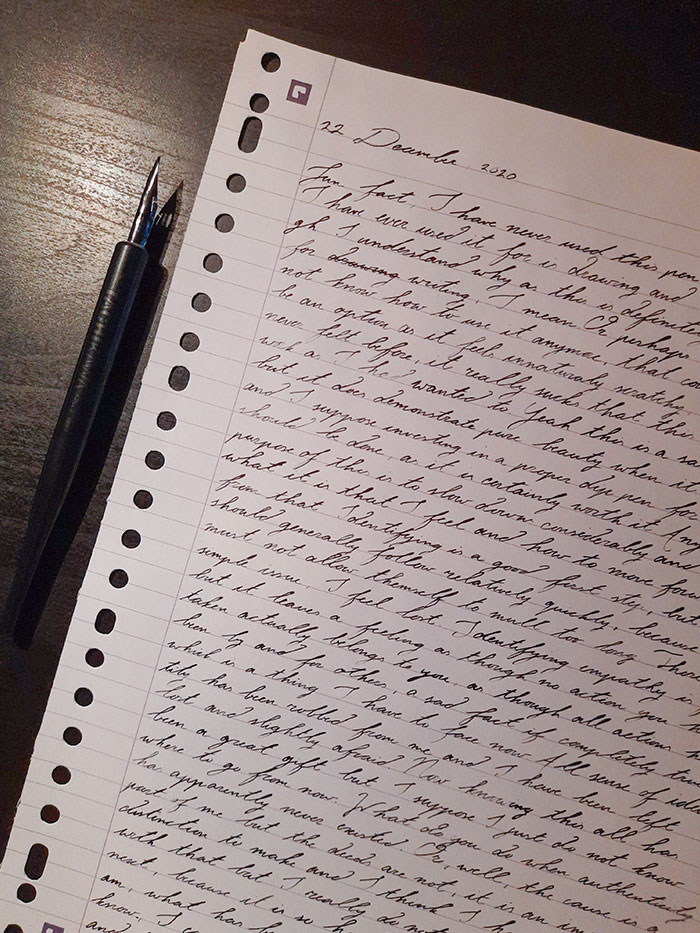 22 December 2020
Fun fact, I have never used this pen
I have ever used it for is drawing and
gh I understand why as this is definitel
for drawing writing. I mean. Or perhaps
not know how to use it anymore, that
be an option as it feels unnaturally scratchy
never felt before, it really sucks that this
work as I had wanted to. Yeah this is a sa
but it does demonstrate pure beauty when it
and I suppose investing in a proper dip pen for
should be done, as it is certainly worth it. Any
purpose of this is to slow down considerably and
what it is that I feel and how to move for
from that. Identifying is a good first step, but
should generally follow relatively quickly, because
must not allow themself to mull too long. Thor
simple issue. I feel lost. Identifying empathy is
but it leaves a feeling as though no action you
taken actually belongs to you as though all actions
been by and for others, a sad fact if completely
which is a thing I have to face now. All sense of iden
tity has been robbed from me and I have been left
lost and slightly afraid. Now knowing this all has
been a great gift but I suppose I just do not know
where to go from now. What do you do when authenticity
has apparently never existed. Or, well, the cause is a
part of me but the deeds are not, it is an im
distinction to make and I think I h
with that but I really do not
next, because it is so h
am, what has
know. I
and